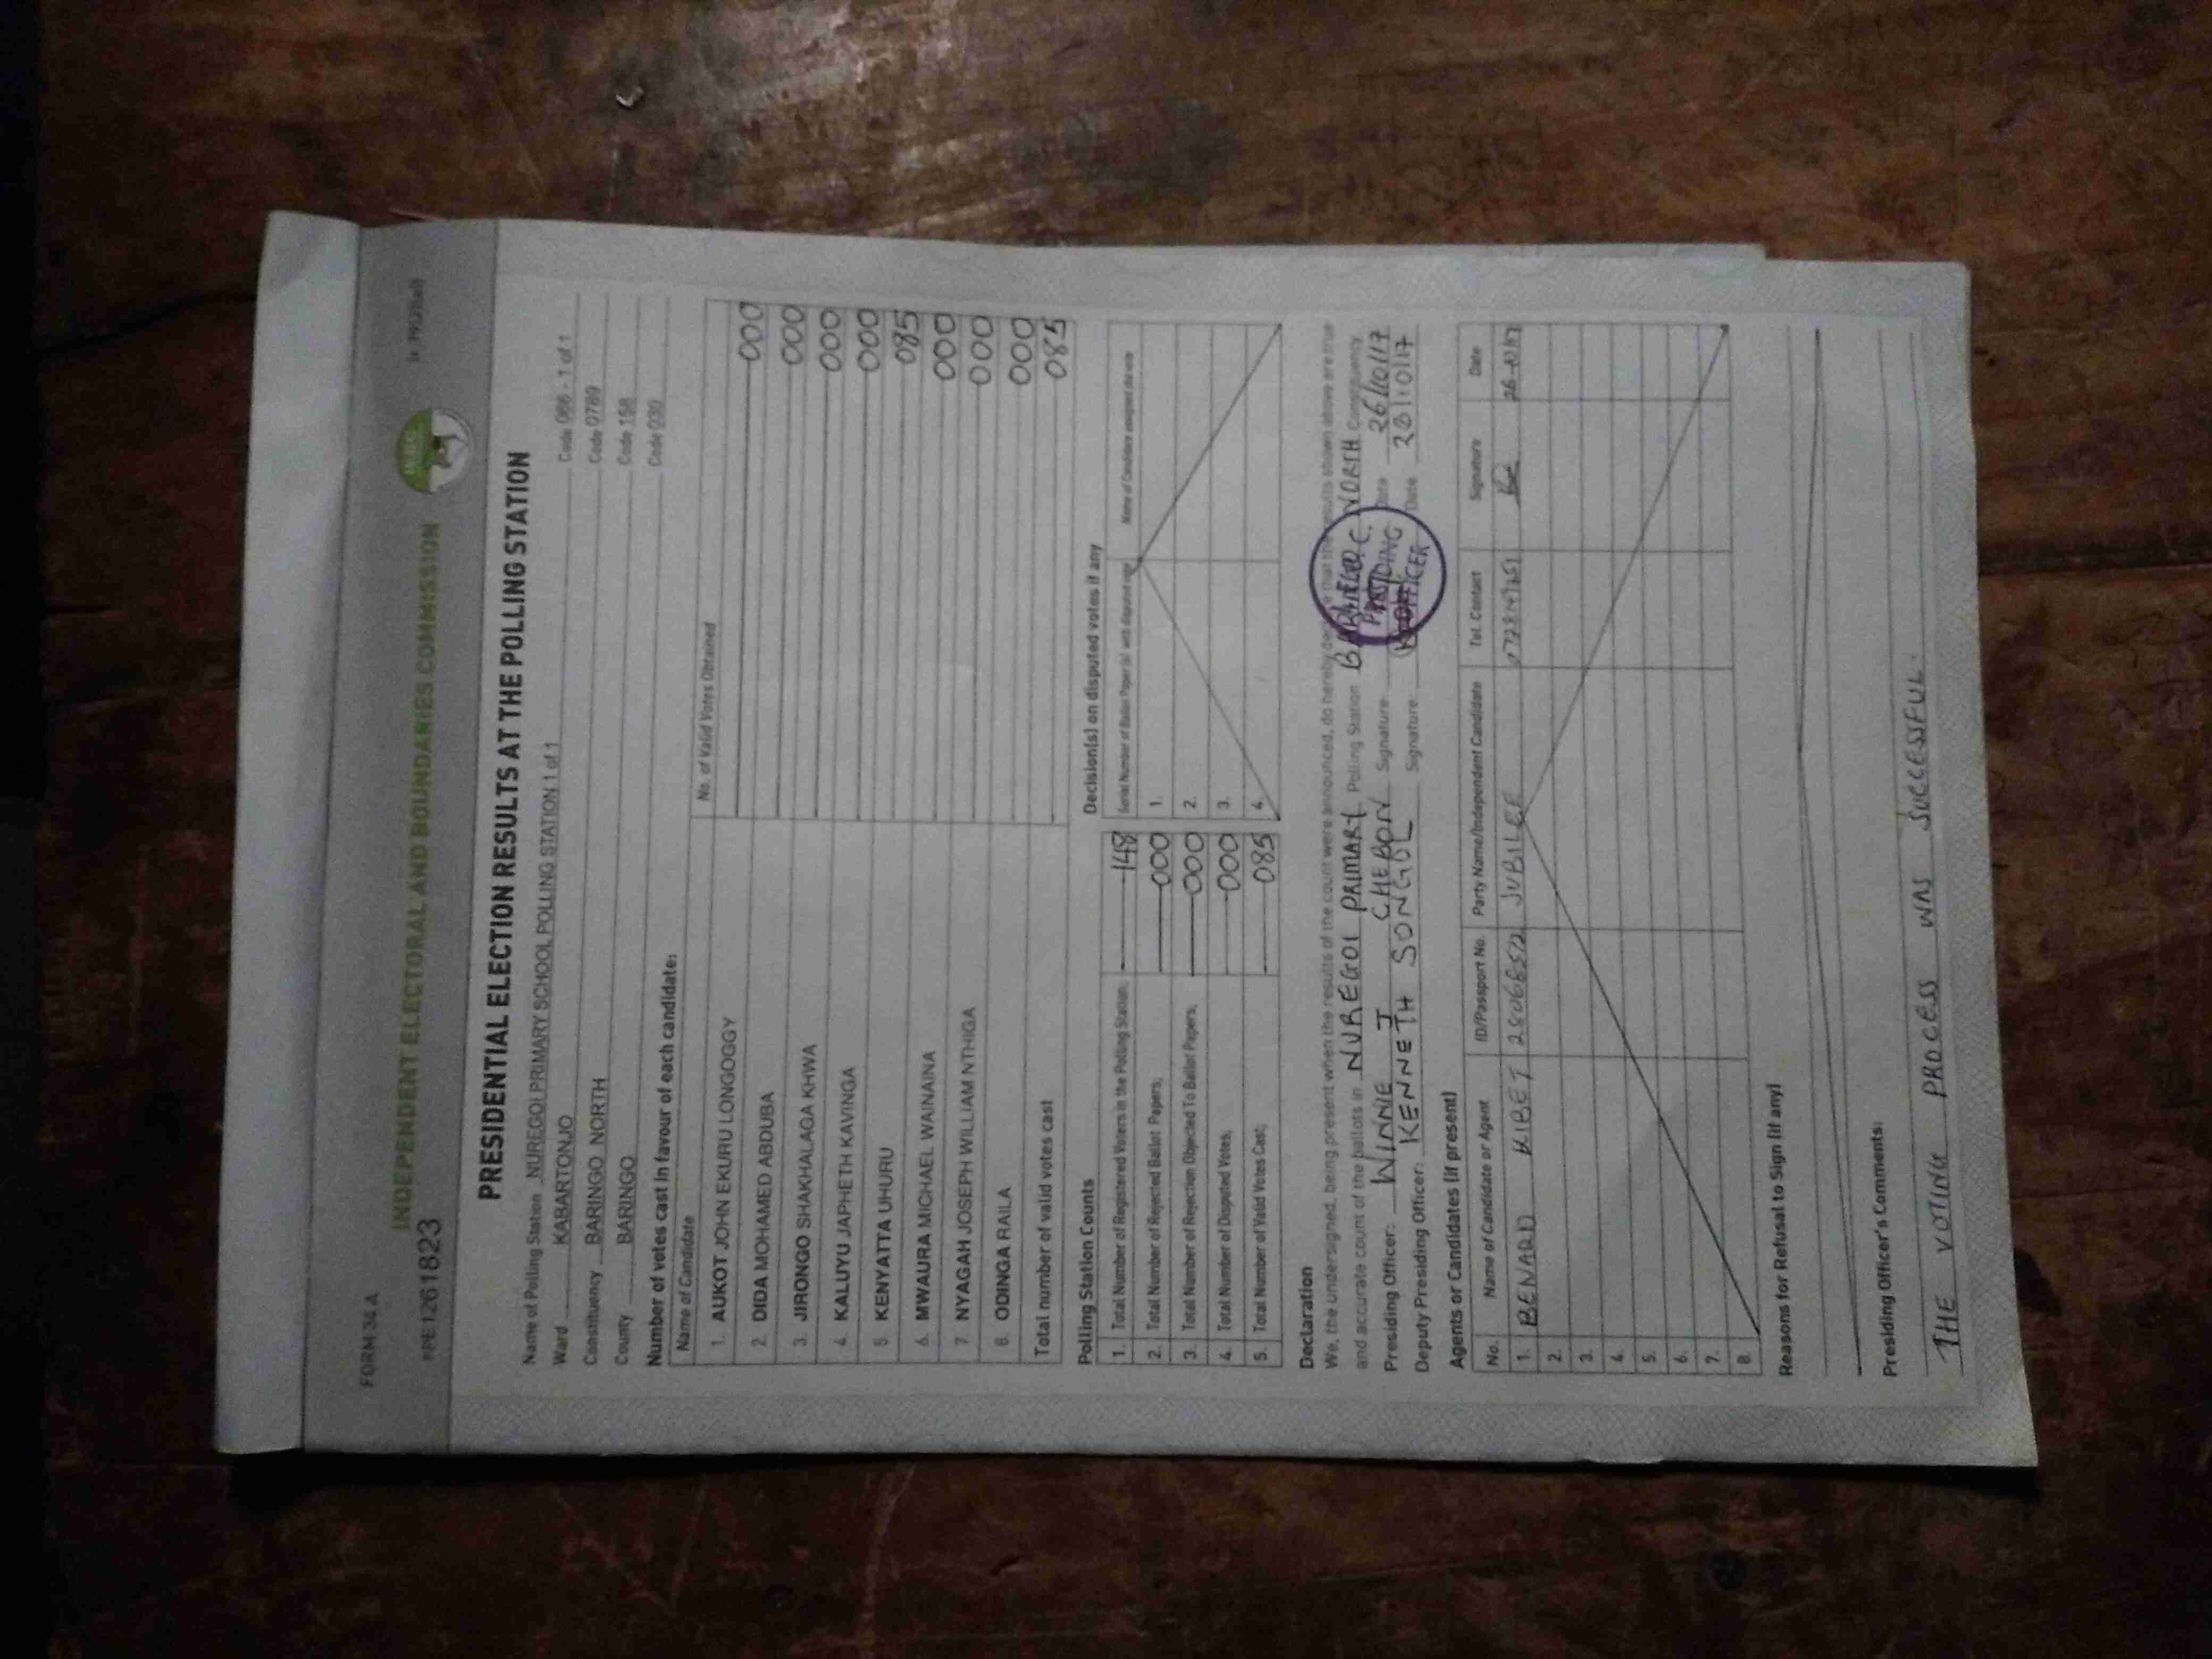 FORM 34 A
INDEPENDENT ELECTORAL AND BOUNDARIES COMMISSION
IEBC
PRESIDENTIAL ELECTION RESULTS AT THE POLLING STATION
Name of Polling Station NUREGOI PRIMARY SCHOOL POLLING STATION 1 of 1 Code 066 - 1 of 1
Ward KABARTONJO Code 0789
Constituency BARINGO NORTH Code 158
County BARINGO Code 030
Number of votes cast in favour of each candidate:
Name of Candidate No. of Valid Votes Obtained
1. AUKOT JOHN EKURU LONGOGGY 000
2. DIDA MOHAMED ABDUBA 000
3. JIRONGO SHAKHALAGA KHWA 000
4. KALUYU JAPHETH KAVINGA 000
5. KENYATTA UHURU 085
6. MWAURA MICHAEL WAINAINA 000
7. NYAGAH JOSEPH WILLIAM NTHIGA 000
8. ODINGA RAILA 000
Total number of valid votes cast 085
Polling Station Counts
1. Total Number of Registered Voters in the Polling Station; 148
2. Total Number of Rejected Ballot Papers; 000
3. Total Number of Rejection Objected To Ballot Papers; 000
4. Total Number of Disputed Votes; 000
5. Total Number of Valid Votes Cast; 085
Decision(s) on disputed votes if any
Serial Number of Ballot Paper(s) with disputed vote Name of Candidate assigned the vote
1.
2.
3.
4.
Declaration
We, the undersigned, being present when the results of the count were announced, do hereby declare that the results shown above are true
and accurate count of the ballots in NUREGOI PRIMARY Polling Station BARINGO NORTH Constituency
Presiding Officer: WINNIE J CHEBON Signature Date 26/10/17
Deputy Presiding Officer: KENNETH SONGOL Signature Date
PRESIDING
OFFICER
Agents or Candidates (if present)
No. Name of Candidate or Agent ID/Passport No. Party Name/Independent Candidate Tel. Contact Signature Date
1. BENARD KIBET JUBILEE
2.
3.
4.
5.
6.
7.
8.
Reasons for Refusal to Sign (if any)
Presiding Officer's Comments:
THE VOTING PROCESS WAS SUCCESSFUL.